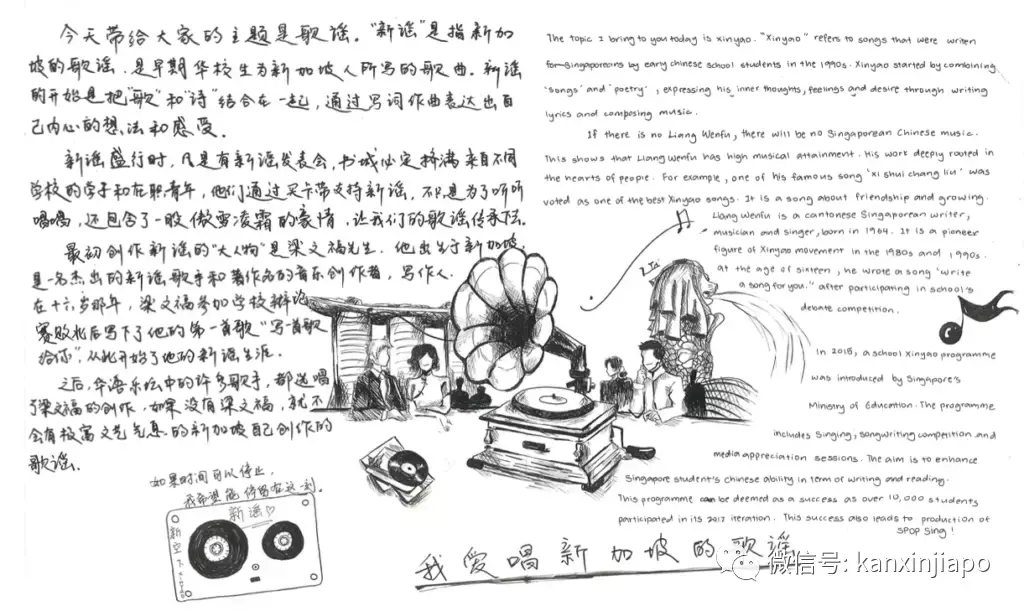 今天带给大家的主题是歌谣。"新谣"是指新加
坡的歌谣，是早期华校生为新加坡人所写的歌曲。新谣
的开始是把"歌"和"诗"结合在一起，通过写词作曲表达出自
己内心的想法和感受。
新谣盛行时，凡是有新谣发表会，书城必定挤满来自不同
学校的学子和在职青年，他们通过买卡带支持新谣，不只是为了听听
唱唱，还包含了一股傲雪凌霜的豪情，让我们的歌谣传承下去。
最初创作新谣的"大人物"是梁文福先生。他出生于新加坡，
是一名杰出的新谣歌手和著作名的音乐创作者，写作人。
在十六岁那年，梁文福参加学校辩论
赛败北后写下了他的第一首歌"写一首歌
给你"，从此开始了他的新谣生涯。
之后，华语乐坛中的许多歌手，都选唱
了梁文福的创作。如果没有梁文福，就不
会有极富文艺气息的新加坡自己创作的
歌谣。
如果时间可以停止，
我希望能停留在这一刻。
新谣♡
新空下
我爱唱新加坡的歌谣
The topic I bring to you today is xinyao. "Xinyao" refers to songs that were writen
for Singaporeans by eary chinese school students in the 1990s. Xinyao started by combining
'songs' and 'poetry', expressing his inner thoughts, feelings and desire through writing
lyrics and composing music.
If there is no Liang Wenfu, there will be no Singaporean Chinese music.
This shows that Liang Wenfu has high musical attainment. His work deeply rooted in
the hearts of people. For example, one of his famous song 'xi shui chang liu' was
voted as one of the best Xinyao songs. It is a song about friendship and growing.
Liang Wenfu is a cantonese Singaporean writer,
musician and singer, born in 1964. It is a pioneer
figure of Xinyao movement in the 1980s and 1990s.
at the age of sixteen, he wrote a song 'write
a song for you." after participating in school's
debate competition.
In 2015, a school Xinyao programme
was introduced by Singapore's
Ministry of Education. The programme
includes Singing, songwriting competition and
media appreciation sessions. The aim is to enhance
Singapore student's chinese ability in term of writing and reading.
This programme can be deemed as a success as over 10,000 students
participated in its 2017 iteration. This success also leads to production of
SPOP Sing!
微信号: kanxinjiapo